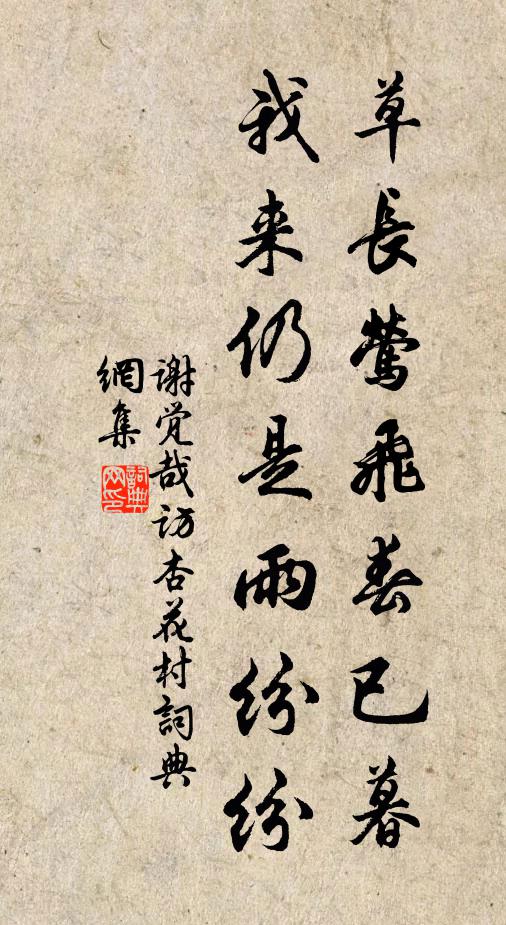 草長鶯飛春已暮
我来仍是雨紛紛
谢觉哉访杏花村詞典
網集
詞典
网印